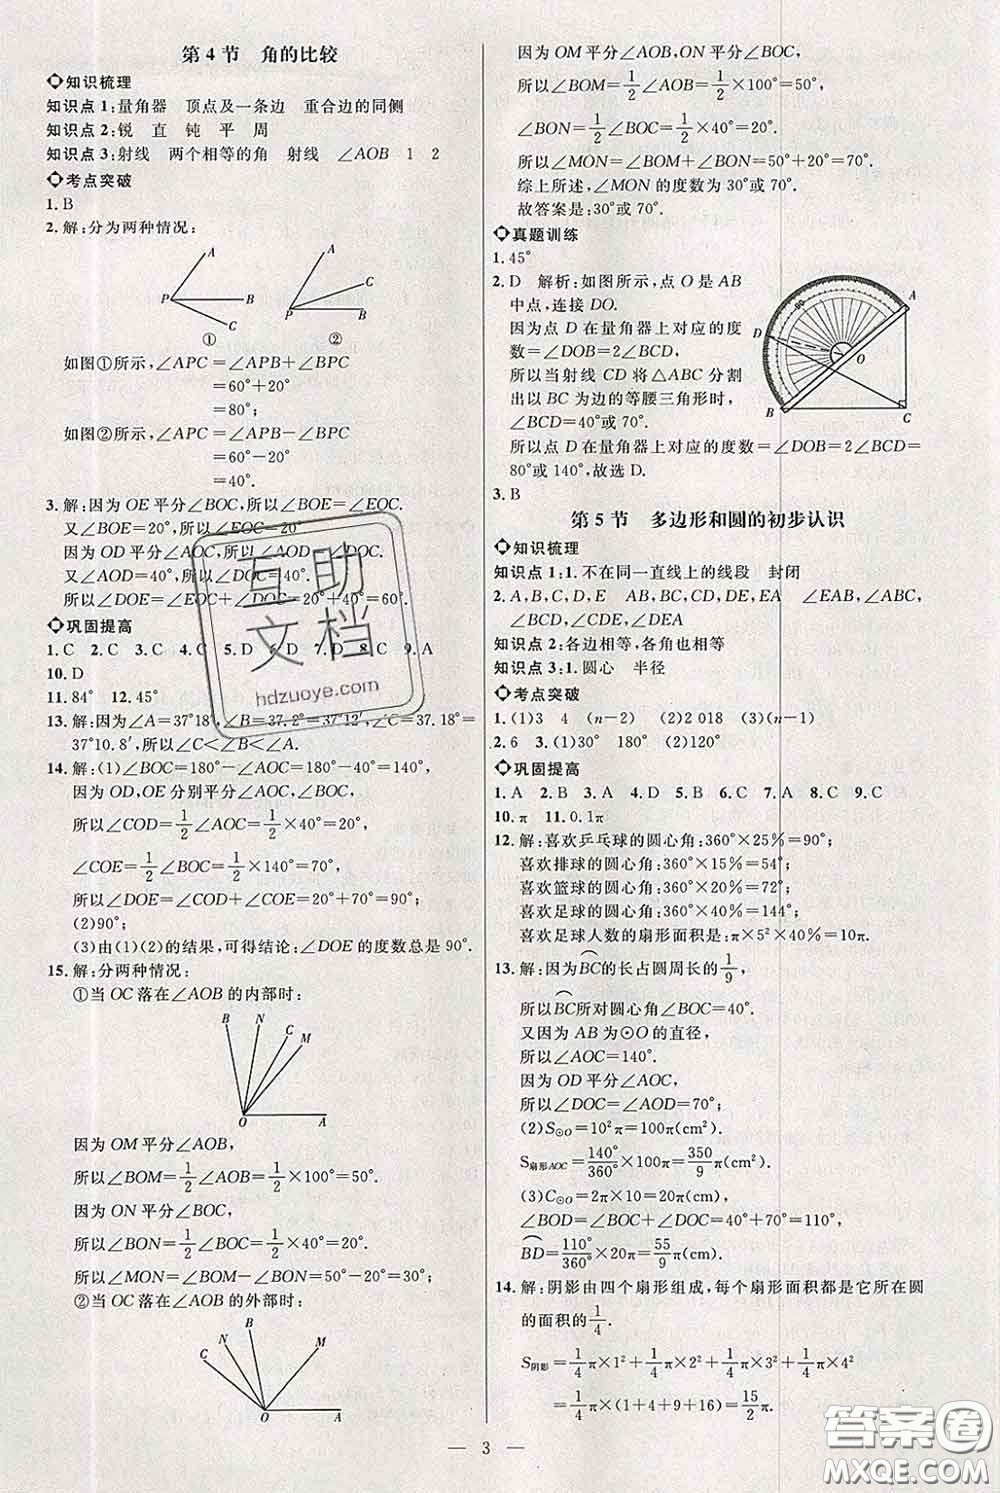 第 4 节 角的比较
知识梳理
知识点 1:量角器 顶点及一条边 重合边的同侧
知识点 2:锐 直 钝 平 周
知识点 3:射线 两个相等的角 射线 ∠AOB 1 2
考点突破
1. B
2. 解:分为两种情况:
A
P B
C
①
A
C
P B
②
如图①所示,∠APC=∠APB+∠BPC
=60°+20°
=80°;
如图②所示,∠APC=∠APB-∠BPC
=60°-20°
=40°.
3. 解:因为 OE 平分∠BOC,所以∠BOE=∠EOC.
又∠BOE=20°,所以∠EOC=20°.
因为 OD 平分∠AOC,所以∠AOD=∠DOC.
又∠AOD=40°,所以∠DOC=40°.
所以∠DOE=∠EOC+∠DOC=20°+40°=60°.
巩固提高
1. C 2. C 3. C 4. C 5. D 6. D 7. D 8. C 9. A
10. D
11. 84° 12. 45°
13. 解:因为∠A=37°18′,∠B=37.2°=37°12′,∠C=37.18°=
37°10.8′,所以∠C<∠B<∠A.
14. 解:(1)∠BOC=180°-∠AOC=180°-40°=140°,
因为 OD,OE 分别平分∠AOC,∠BOC,
所以∠COD=1/2∠AOC=1/2×40°=20°,
∠COE=1/2∠BOC=1/2×140°=70°,
所以∠DOE=∠COD+∠COE=20°+70°=90°;
(2)90°;
(3)由(1)(2)的结果,可得结论:∠DOE 的度数总是 90°.
15. 解:分两种情况:
①当 OC 落在∠AOB 的内部时:
B N C M
O A
因为 OM 平分∠AOB,
所以∠BOM=1/2∠AOB=1/2×100°=50°.
因为 ON 平分∠BOC,
所以∠BON=1/2∠BOC=1/2×40°=20°.
所以∠MON=∠BOM-∠BON=50°-20°=30°.
②当 OC 落在∠AOB 的外部时:
B
N M
C
O A
因为 OM 平分∠AOB,ON 平分∠BOC,
所以∠BOM=1/2∠AOB=1/2×100°=50°,
∠BON=1/2∠BOC=1/2×40°=20°.
所以∠MON=∠BOM+∠BON=50°+20°=70°.
综上所述,∠MON 的度数为 30°或 70°.
故答案是:30°或 70°.
真题训练
1. 45°
2. D 解析:如图所示,点 O 是 AB
中点,连接 DO.
因为点 D 在量角器上对应的度
数=∠DOB=2∠BCD,
所以当射线 CD 将△ABC 分割
出以 BC 为边的等腰三角形时,
∠BCD=40°或 70°.
所以点 D 在量角器上对应的度数=∠DOB=2∠BCD=
80°或 140°,故选 D.
90
A
D
O
B C
3. B
第 5 节 多边形和圆的初步认识
知识梳理
知识点 1:1. 不在同一直线上的线段 封闭
2. A,B,C,D,E AB,BC,CD,DE,EA ∠EAB,∠ABC,
∠BCD,∠CDE,∠DEA
知识点 2:各边相等,各角也相等
知识点 3:1. 圆心 半径
考点突破
1. (1)3 4 (n-2) (2)2 018 (3)(n-1)
2. 6 3. (1)30° 180° (2)120°
巩固提高
1. A 2. B 3. A 4. D 5. C 6. C 7. A 8. C 9. C
10. π 11. 0.1π
12. 解:喜欢乒乓球的圆心角:360°×25%=90°;
喜欢排球的圆心角:360°×15%=54°;
喜欢篮球的圆心角:360°×20%=72°;
喜欢足球的圆心角:360°×40%=144°;
喜欢足球人数的扇形面积是:π×5²×40%=10π.
13. 解:因为BC⌒的长占圆周长的1/9,
所以BC⌒所对圆心角∠BOC=40°.
又因为 AB 为⊙O 的直径,
所以∠AOC=140°.
因为 OD 平分∠AOC,
所以∠DOC=∠AOD=70°;
(2)S⊙O=10²π=100π(cm²).
S扇形AOC=140°/360°×100π=350/9π(cm²).
(3)C⊙O=2π×10=20π(cm),
∠BOD=∠BOC+∠DOC=40°+70°=110°,
BD⌒=110°/360°×20π=55/9π(cm).
14. 解:阴影由四个扇形组成,每个扇形面积都是它所在圆
的面积的1/4.
S阴影=1/4π×1²+1/4π×2²+1/4π×3²+1/4π×4²
=1/4π×(1+4+9+16)=15/2π.
— 3 —
互助
文档
hdzuoye.com
答案圈
MXQE.COM